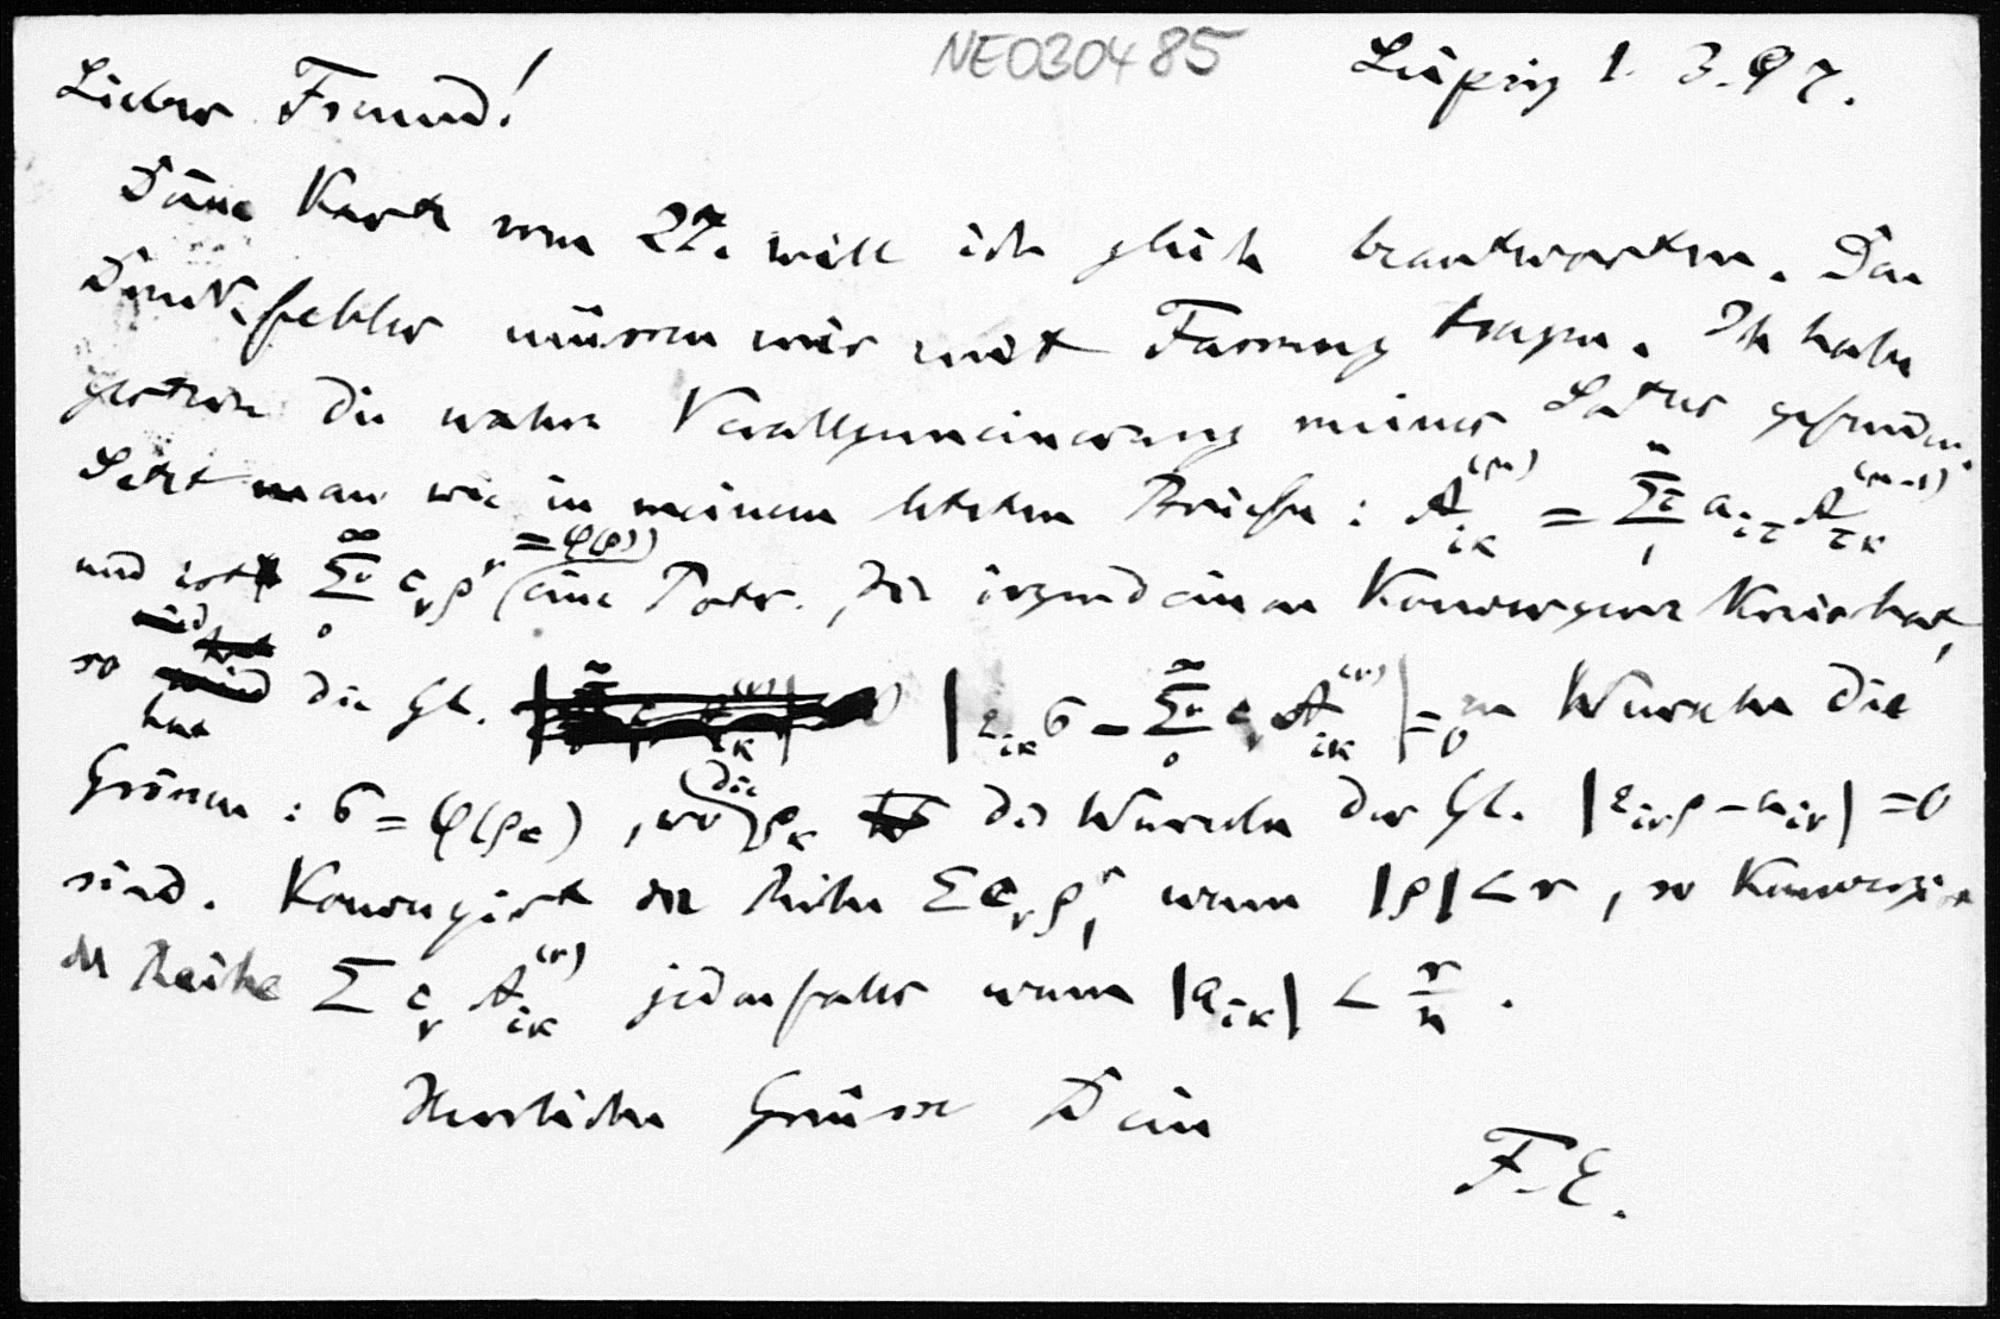 NE030485
Leipzig 1. 3. 97.
Lieber Freund!
Deine Karte vom 27. will ich gleich beantworten. Den
Druckfehler müssen wir mit Fassung tragen. Ich habe
gestern die wahre Verallgemeinerung meines Satzes gefunden.
Setzt man wie in meinem letzten Briefe: A_{ik}^{(μ)} = Σ_{τ=1}^{n} a_{iτ} A_{τk}^{(μ-1)}
und ist Σ_{0}^{∞} c_ν ρ^ν (=φ(ρ)) eine Potr., die irgend einen Konvergenz Kreis hat,
so hat die Gl. |ε_{ik} σ − Σ_{0}^{∞} c_ν A_{ik}^{(ν)}| = 0 zu Wurzeln die
Grössen: σ = φ(ρ_κ), wo die ρ_κ die Wurzeln der Gl. |ε_{ik}ρ − a_{ik}| = 0
sind. Konvergirt die Reihe Σ c_ν ρ^ν, wenn |ρ| < r, so konvergirt
die Reihe Σ c_ν A_{ik}^{(ν)} jedenfalls wenn |a_{ik}| < r/n.
Herzliche Grüsse Dein
F.E.